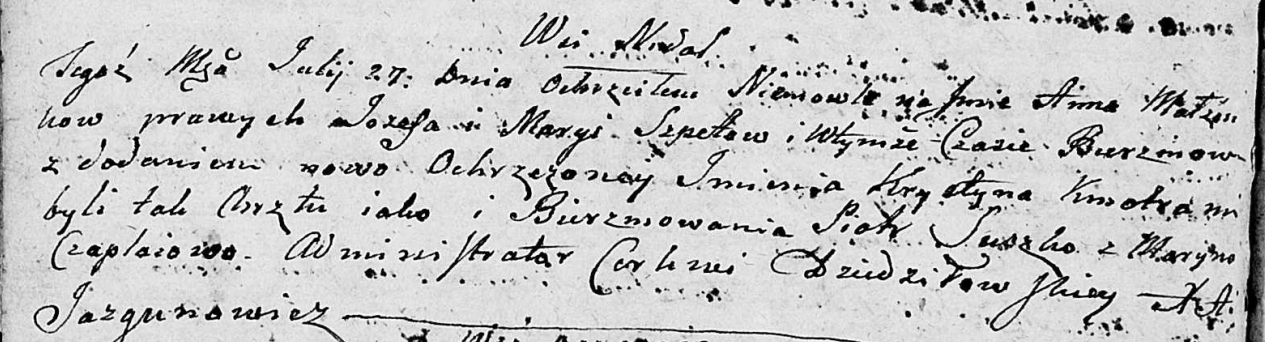 Wieś Nidal
Tegoż Mśca Julij 27. Dnia Ochrzciłem Niemowle na Jmie Anna Małżon
kow prawych Jozefa i Maryi Szpetow i Wtymże Czasie Bierzmow
z dodaniem nowo Ochrzczoney Jmienia Krystyna Kmotrami
byli tak Chrztu iako i Bierzmowania Piotr Suszko z Maryno
Czaplaiowo. Administrator Cerkwi Dziedziłowskiey
Jazgunowicz